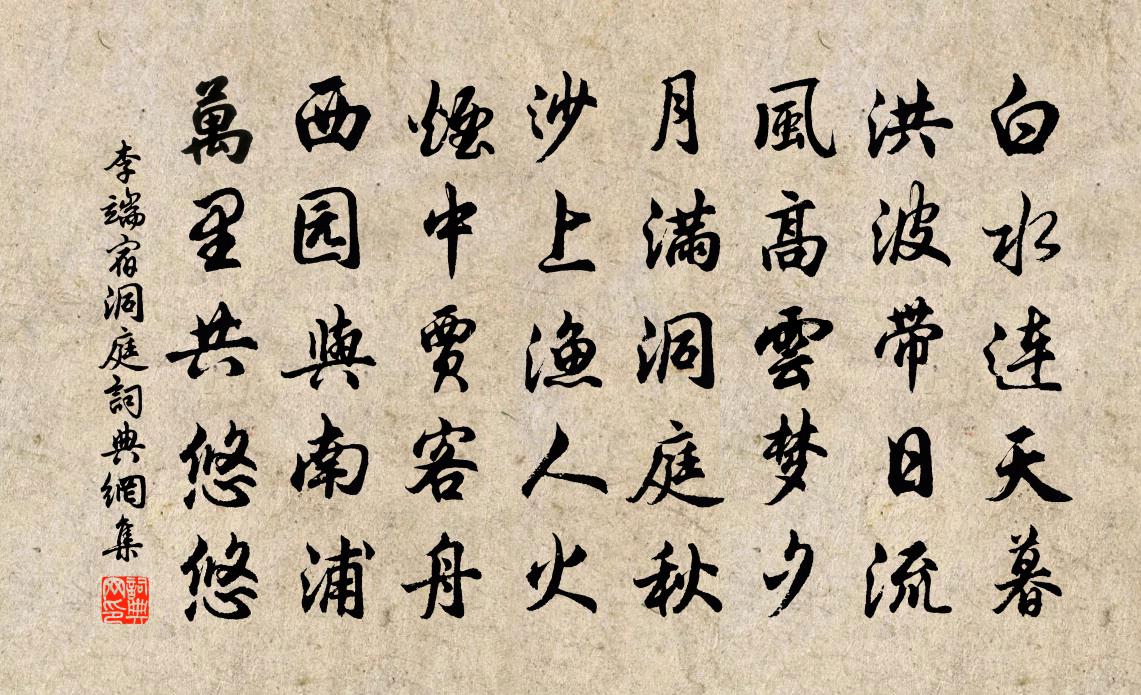 白水連天暮
洪波带日流
風高雲梦夕
月满洞庭秋
沙上渔人火
煙中賈客舟
西园與南浦
萬里共悠悠
李端宿洞庭詞典網集
詞典网印